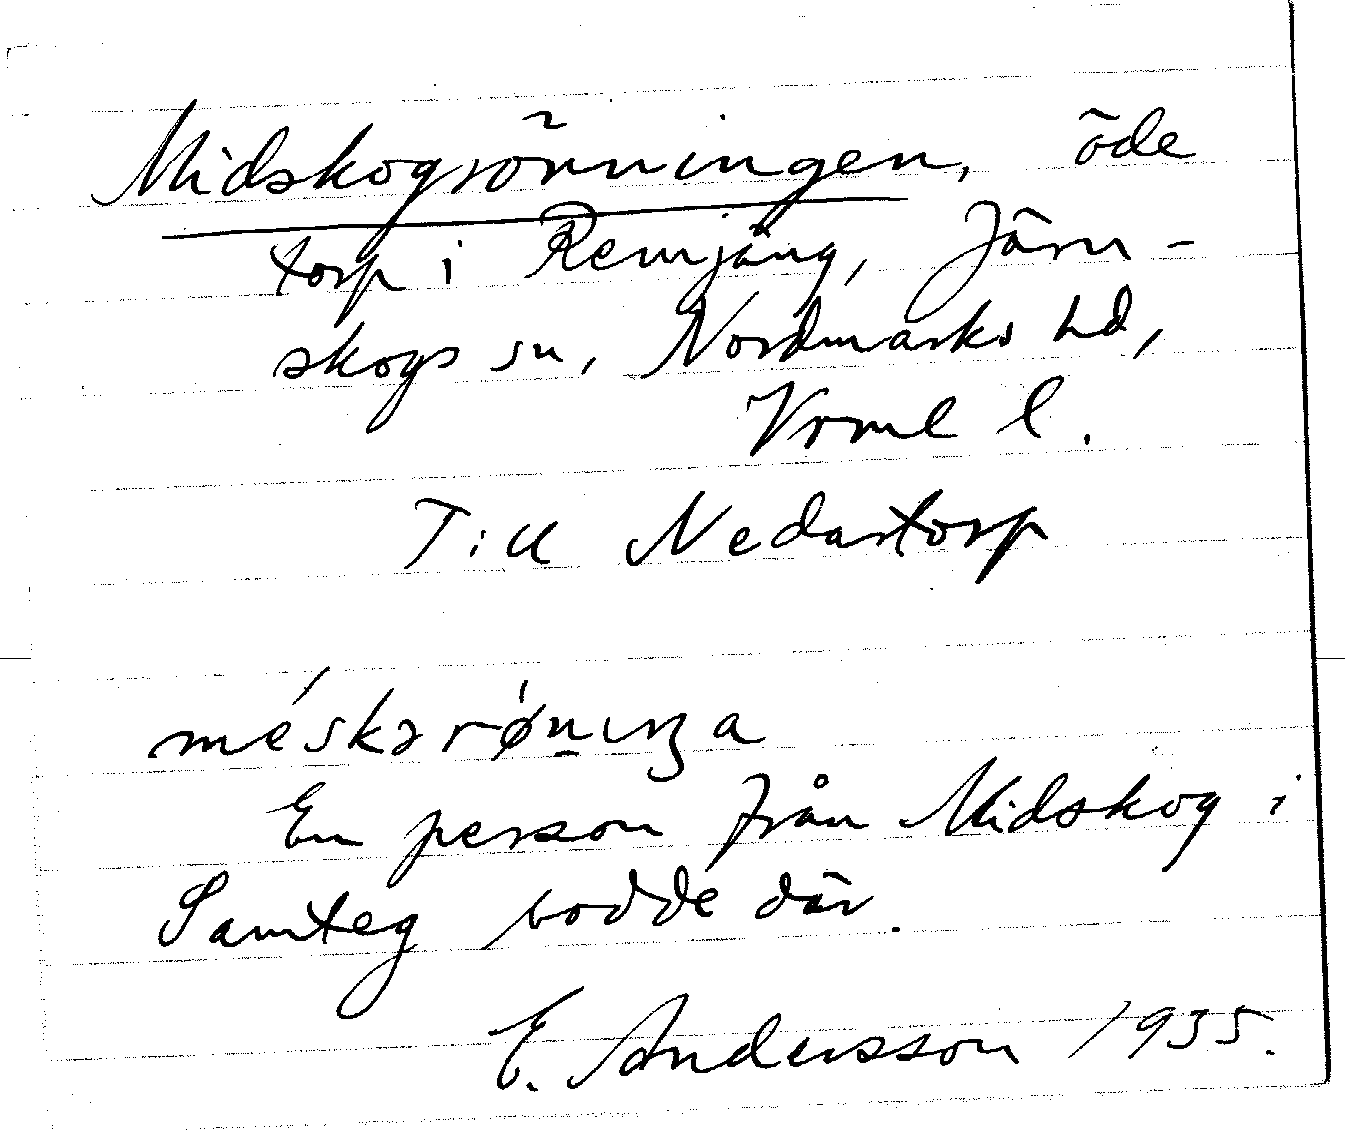 Midskogsrönningen, öde
torp i Remjäng, Järn-
skogs sn, Nordmarks hd,
Vrml l.
Till Nedartorp
méskərǿnıŋa
En person från Midskog i
Samteg bodde där.
E. Andersson 1935.